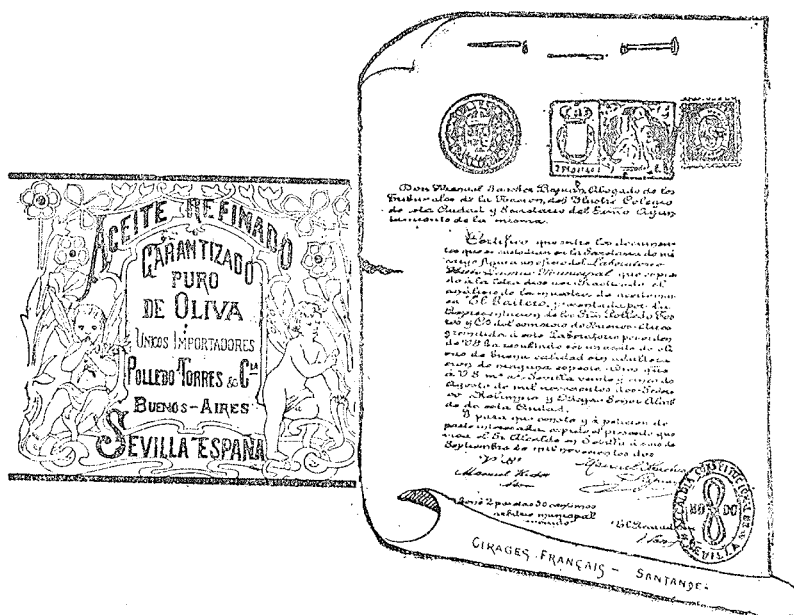 ACEITE REFINADO
GARANTIZADO
PURO
DE OLIVA
UNICOS IMPORTADORES
POLLEDO TORRES & Cia
BUENOS-AIRES
SEVILLA ESPAÑA
Don Manuel Abogado de los
Tribunales de la Nacion, del Ilustre Colegio
de esta Ciudad y Secretario del Exmo Ayun
tamiento de la misma.
Certifico que entre los documen
tos que se custodian en la Secretaria de mi
cargo figura un oficio del Laboratorio
Municipal que copia
do á la letra dice
analisis de la muestra de aceite mar
ca El presentada por la
Representacion de los Sres Polledo Tor
res y Cia del comercio de Buenos Aires
y remitida á este Laboratorio por orden
de VS ha resultado ser un aceite de oli
va de buena calidad sin adultera
cion de ninguna especie. Dios gue
á V.S. ms as Sevilla veinte y cinco de
Agosto de mil novecientos dos
Señor Alcal
de de esta Ciudad.
Y para que conste y á peticion de
parte interesada expido el presente que
visa el Sr Alcalde en Sevilla á uno de
Septiembre de mil novecientos dos
Vo Bo
Manuel
2 pesetas 50 centimos
arbitrio municipal
ALCALDIA CONSTITUCIONAL DE SEVILLA
NO DO
CIRAGES FRANÇAIS - SANTANDER